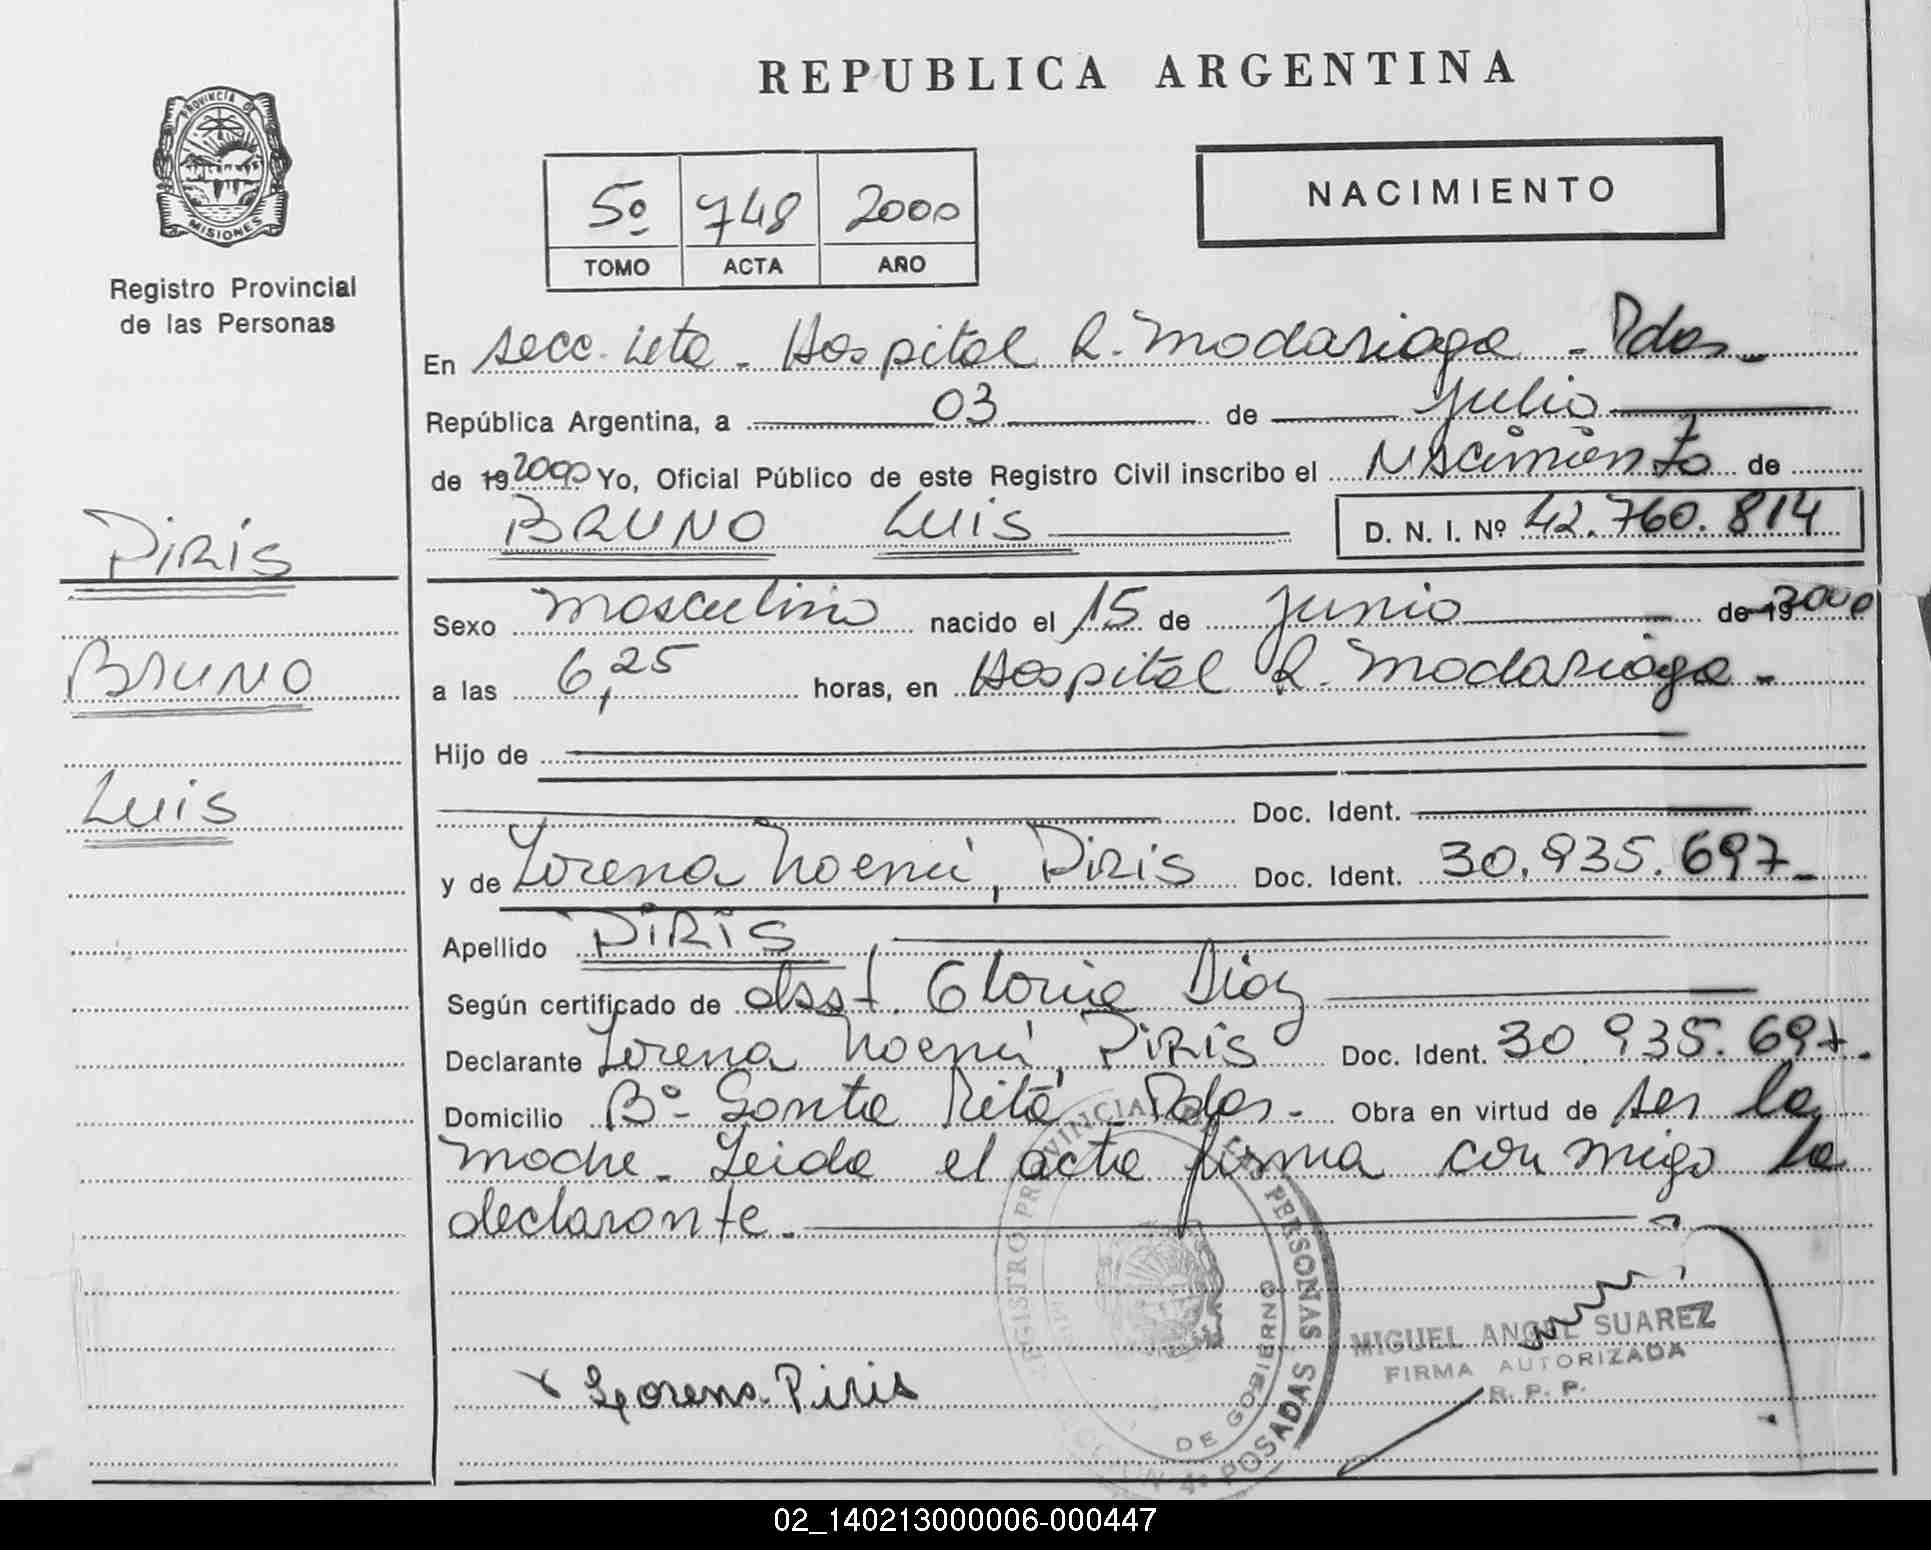 REPUBLICA ARGENTINA
PROVINCIA DE
MISIONES
Registro Provincial
de las Personas
5º 748 2000
TOMO ACTA AÑO
NACIMIENTO
En secc. 4ta - Hospital R. Madariaga - Pdas -
República Argentina, a 03 de Julio
de 19 2000 Yo, Oficial Público de este Registro Civil inscribo el Nacimiento de
BRUNO Luis D. N. I. Nº 42.760.814
PIRIS
BRUNO
Luis
Sexo masculino nacido el 15 de Junio de 19 2000
a las 6,25 horas, en Hospital R. Madariaga -
Hijo de
Doc. Ident.
y de Lorena Noemí, PIRIS Doc. Ident. 30.935.697 -
Apellido PIRIS
Según certificado de obst. Gloria Diaz
Declarante Lorena Noemí, PIRIS Doc. Ident. 30.935.697.
Domicilio Bº Santa Rita, Pdas - Obra en virtud de ser la
madre - Leida el acta firma con migo la
declarante.
REGISTRO PROVINCIAL DE LAS PERSONAS
DE GOBIERNO
POSADAS
MIGUEL ANGEL SUAREZ
FIRMA AUTORIZADA
R. P. P.
x Lorena Piris
02_140213000006-000447